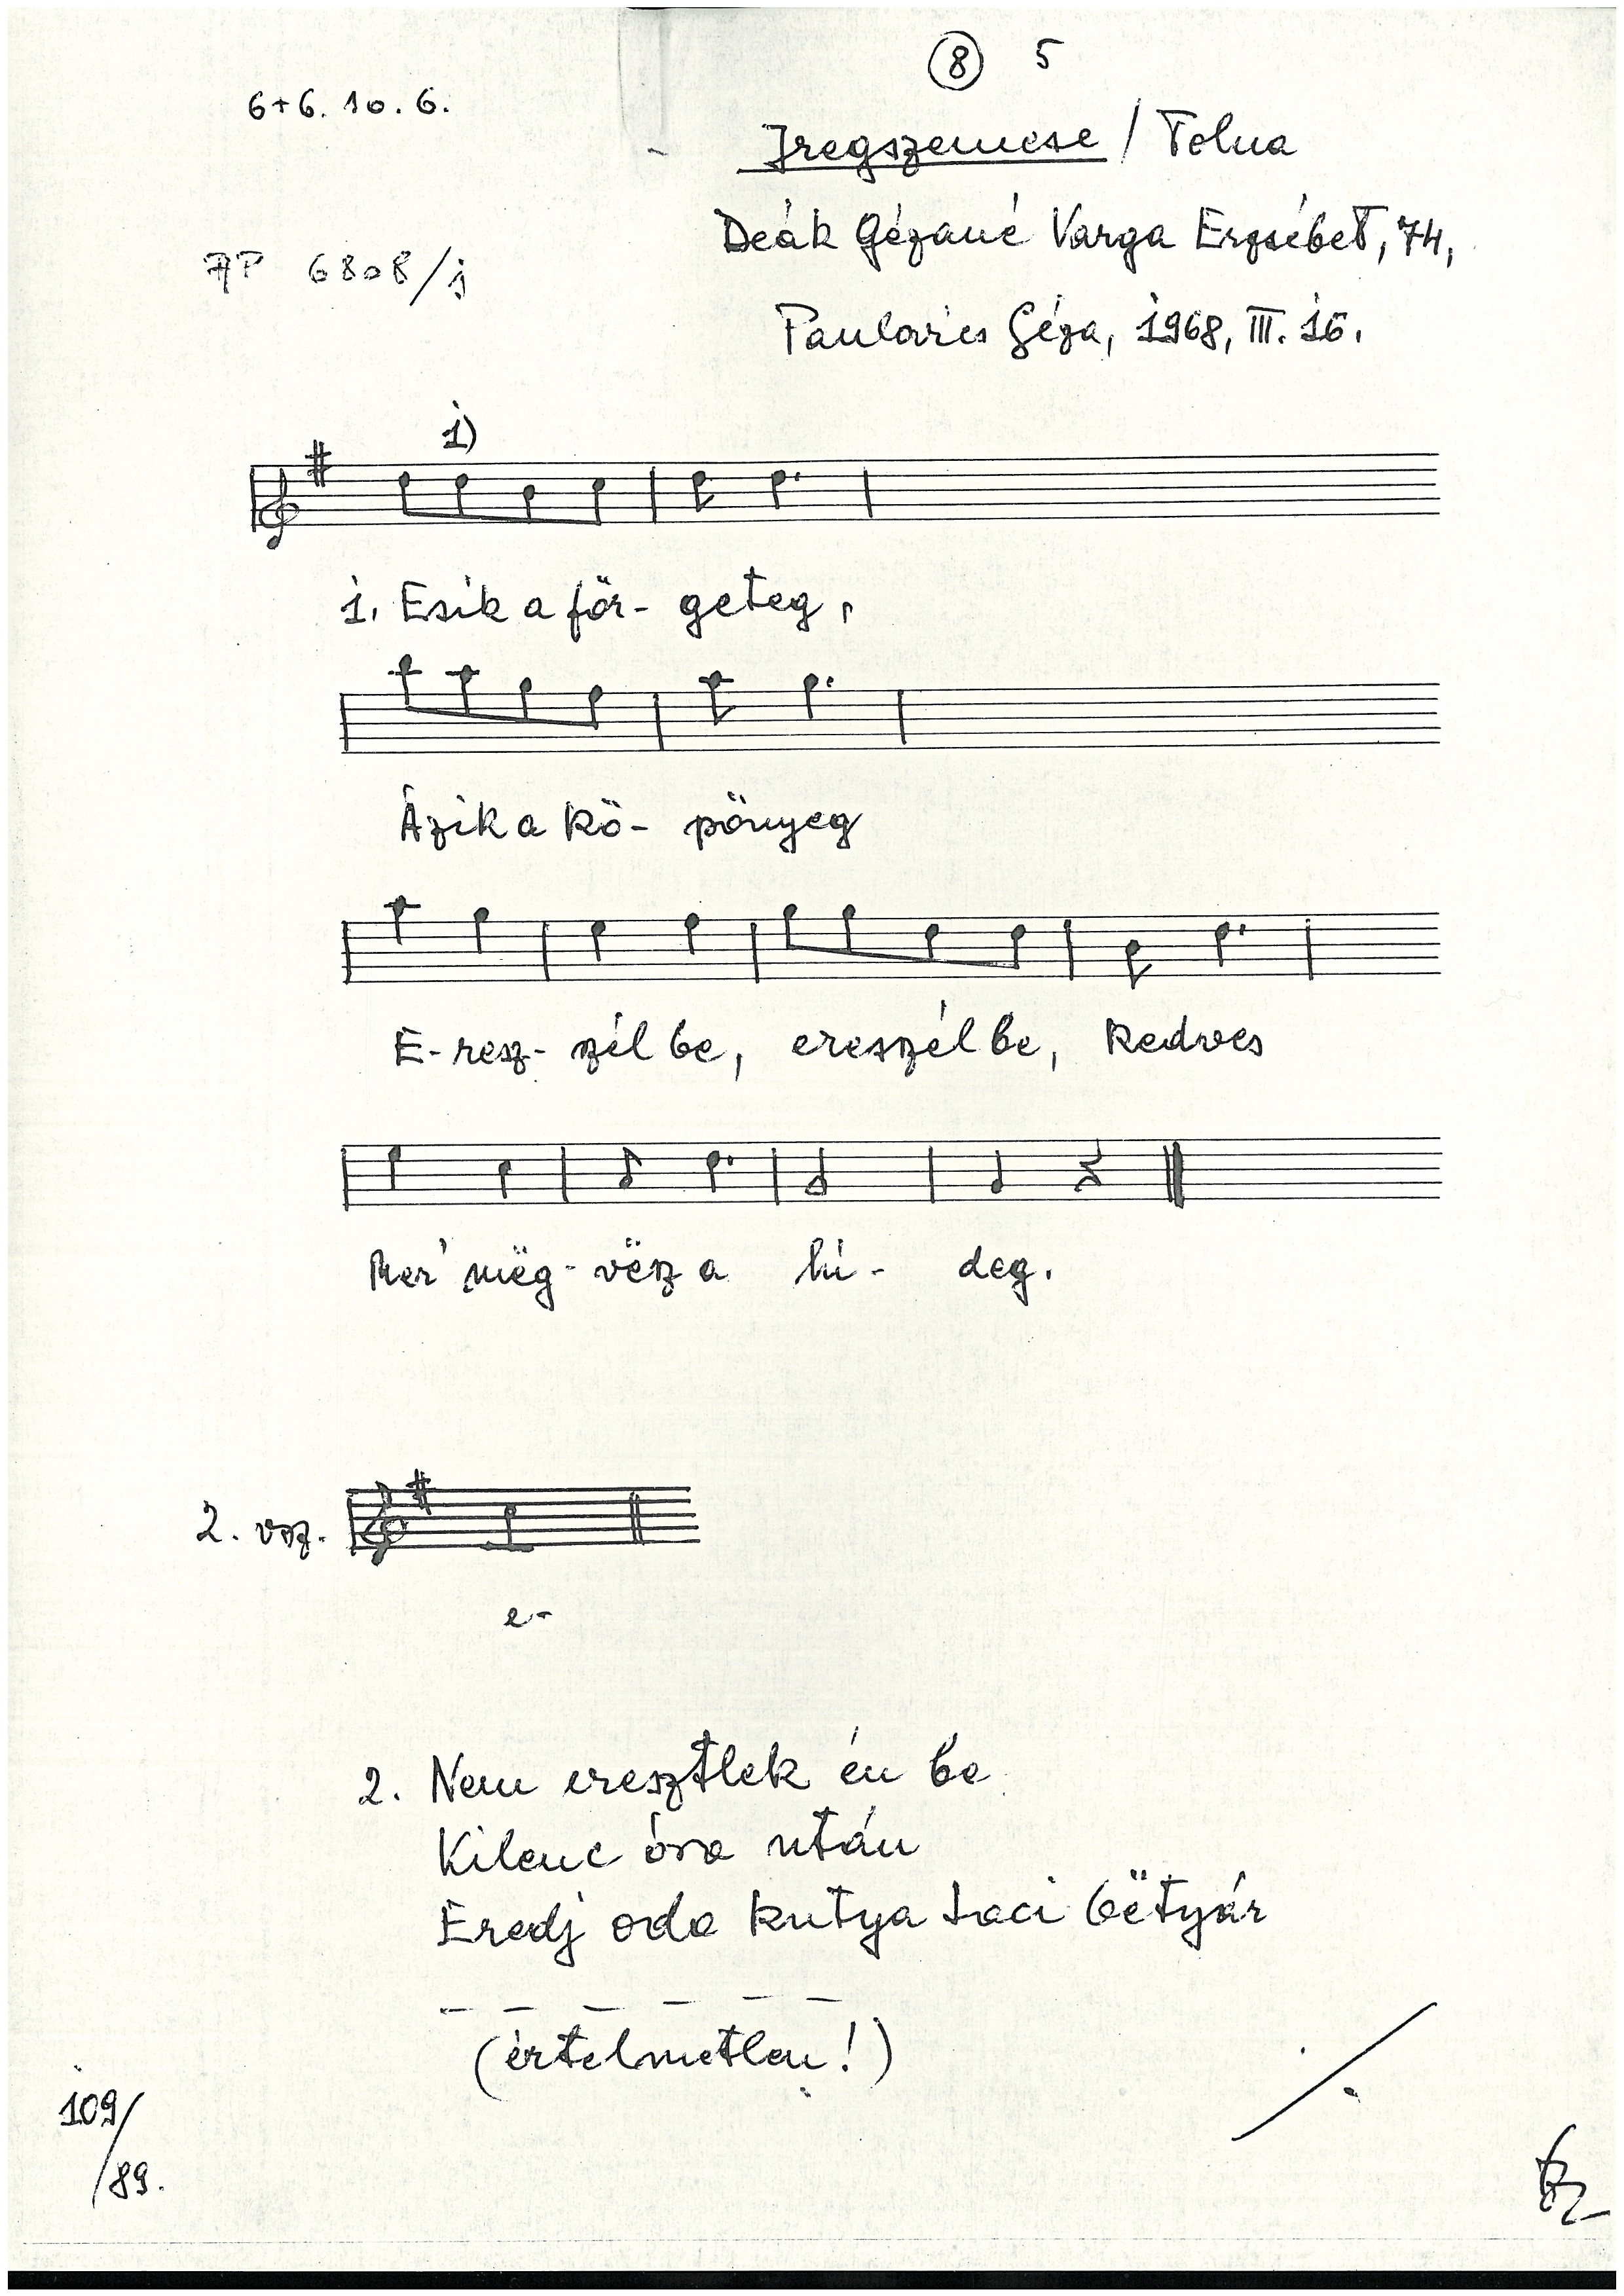 8 5
6+6. 10. 6.
Iregszemcse / Tolna
Deák Gézáné Varga Erzsébet, 74,
AP 6808/j
Paulovics Géza, 1968, III. 16.
1)
1. Esik a för- geteg,
Ázik a kö- pönyeg
E-resz- zél be, ereszél be, kedves
Mer' mëg- vësz a hi- deg.
2. vsz.
e-
2. Nem eresztlek én be
Kilenc óra után
Eredj oda kutya Laci bëtyár
– – – – – –
(értelmetlen!)
109/
/89.